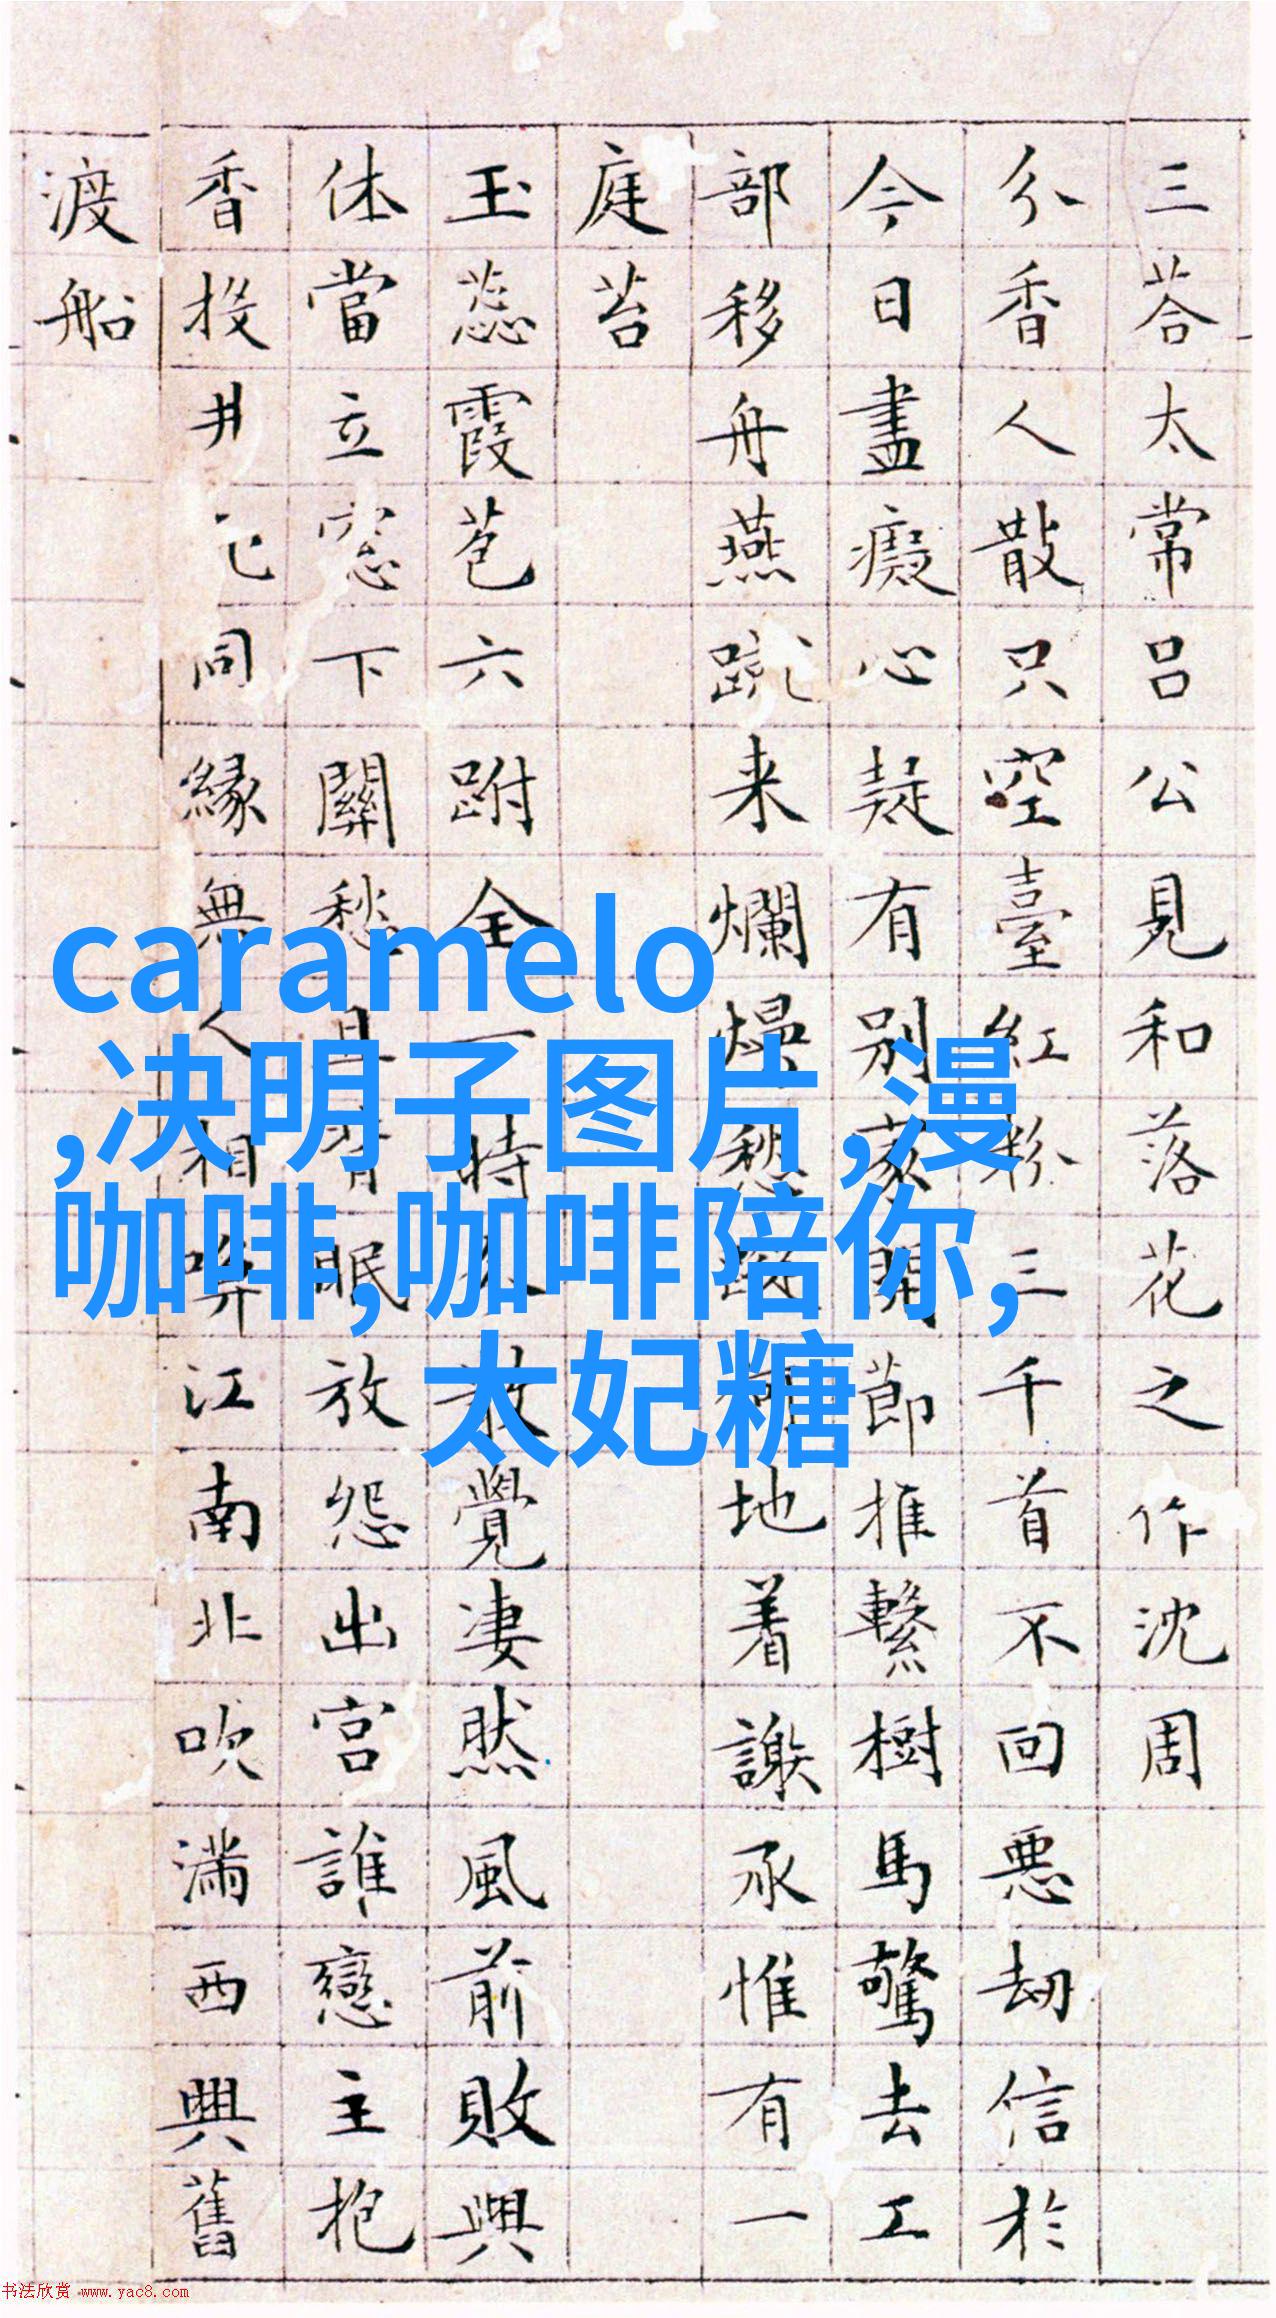 三荅太常呂公見和落花之作沈周
分香人散只空臺紅粉三千首不回惡劫信於
今日盡癡心疑有別家開節推繫樹馬驚去工
部移舟燕蹴来爛熳愁蹤何地着謝承惟有一
庭苔
玉蕊霞苞六跗全一時
覺凄然風前敗興
休當立窓下關愁且有眠放怨出宮誰戀主抱
香投井
同緣無人相喚江南北吹滿西興舊
渡船
caramelo
,决明子图片,漫
咖啡,咖啡陪你,
太妃糖
书法欣赏 www.yac8.com